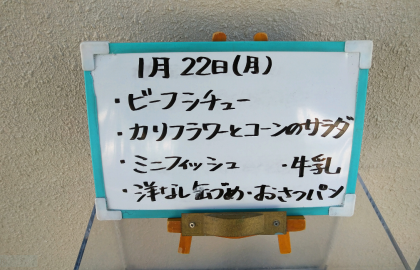 1月22日(月)
・ビーフシチュー
・カリフラワーとコーンのサラダ
・ミニフィッシュ ・牛乳
・洋なし缶づめ・おさつパン